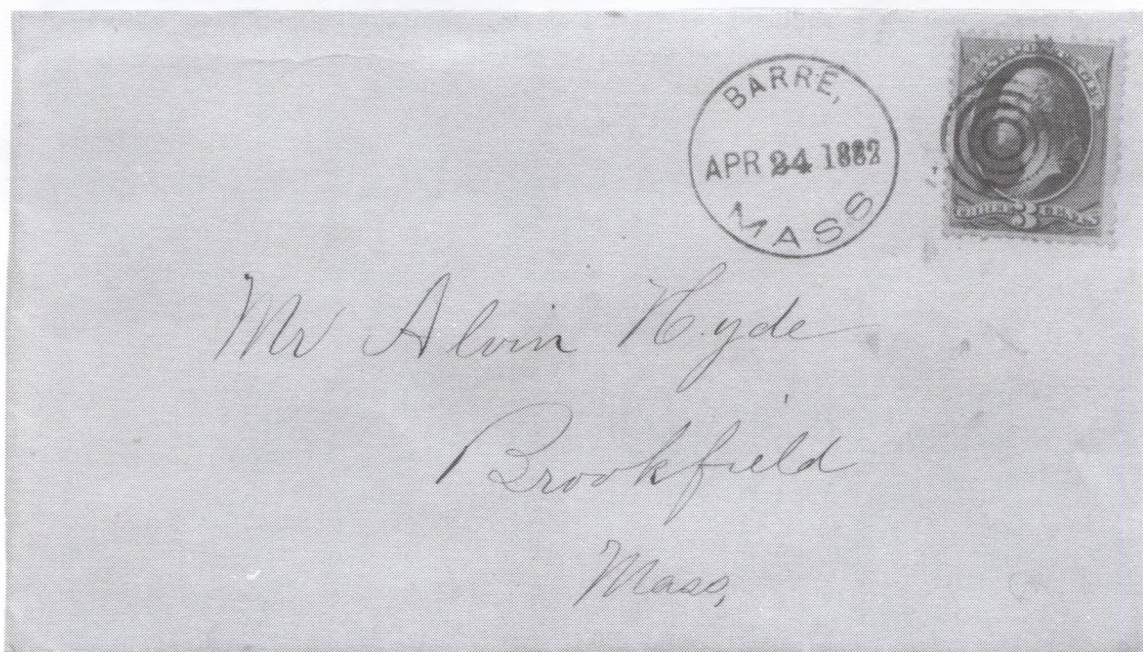 BARRE,
APR 24 1882
MASS
3 CENTS
Mr Alvin Hyde
Brookfield
Mass,